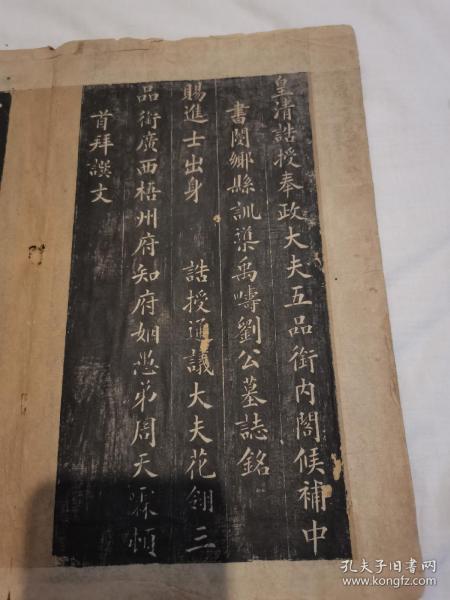 皇清誥授奉政大夫五品銜內閣候補中
書閿鄉縣訓導禹疇劉公墓誌銘
賜進士出身 誥授通議大夫花翎三
品銜廣西梧州府知府姻愚弟周天霖頓
首拜譔文
孔夫子旧书网
www.kongfz.com